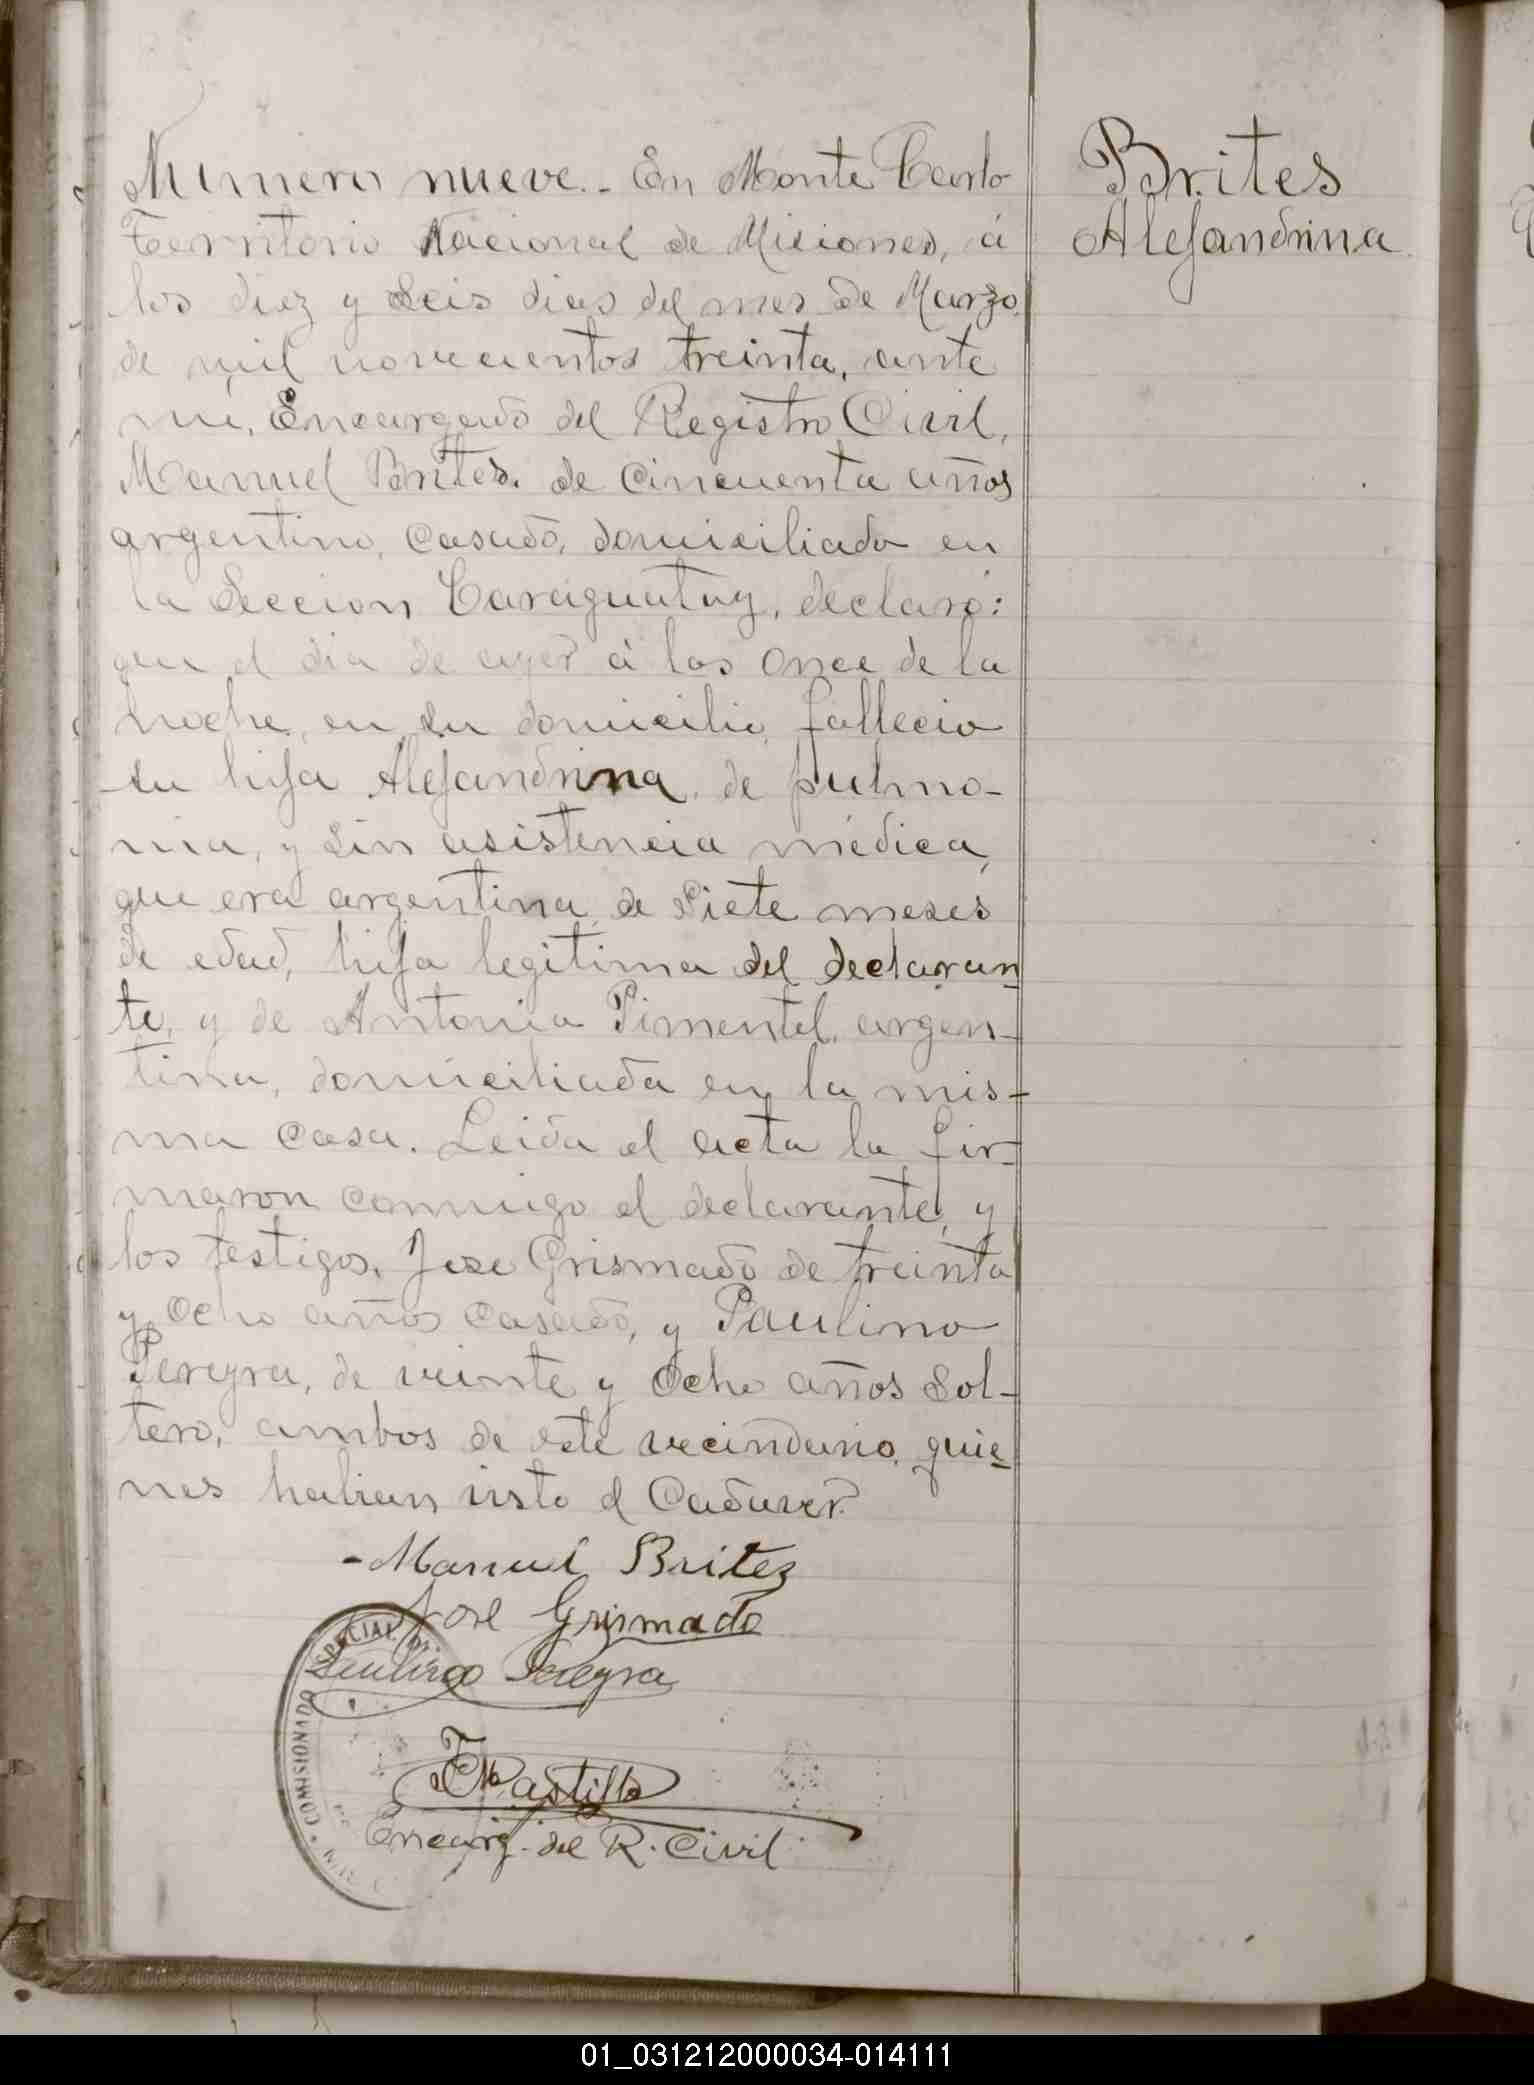 Numero nueve.- En Monte Carlo
Territorio Nacional de Misiones, á
los diez y seis dias del mes de Marzo
de mil novecientos treinta, ante
mi, Encargado del Registro Civil,
Manuel Brites. de cincuenta años
argentino, casado, domiciliado en
la Seccion Caraguatay, declaró:
que el dia de ayer á las once de la
noche, en su domicilio, fallecio
su hija Alejandrina, de pulmo-
nia, y sin asistencia médica,
que era argentina, de siete meses
de edad, hija legitima del declaran-
te, y de Antonia Pimentel, argen-
tina, domiciliada en la mis-
ma casa. Leida el acta la fir-
maron conmigo el declarante, y
los testigos, Jose Grismado de treinta
y ocho años casado, y Paulino
Pereyra, de veinte y ocho años sol-
tero, ambos de este vecindario, quie-
nes habian visto el cadaver.
- Manuel Britez
Jose Grismado
Paulino Pereyra
Castillo
Encarg. del R. Civil
COMISIONADO ESPECIAL
Brites
Alejandrina
01_031212000034-014111